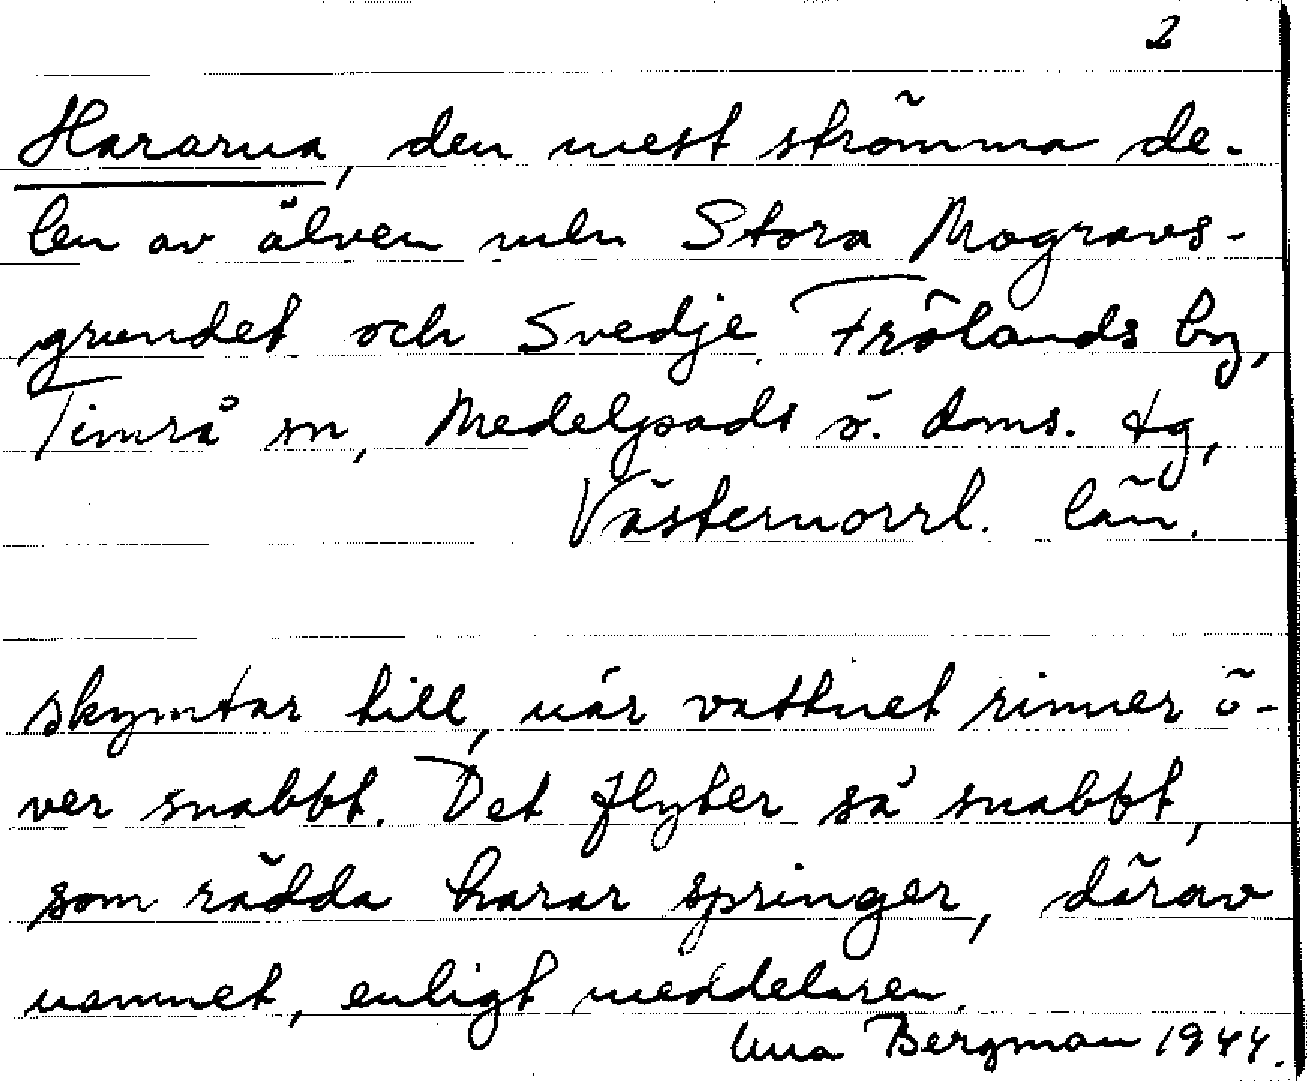 2
Hararna, den mest strömma de-
len av älven meln Stora Mogravs-
grundet och Svedje. Frölands by,
Timrå sn, Medelpads ö. doms. tg,
Västernorrl. län.
skymtar till, när vattnet rinner ö-
ver snabbt. Det flyter så snabbt,
som rädda harar springer, därav
namnet, enligt meddelaren.
Bergman 1944.